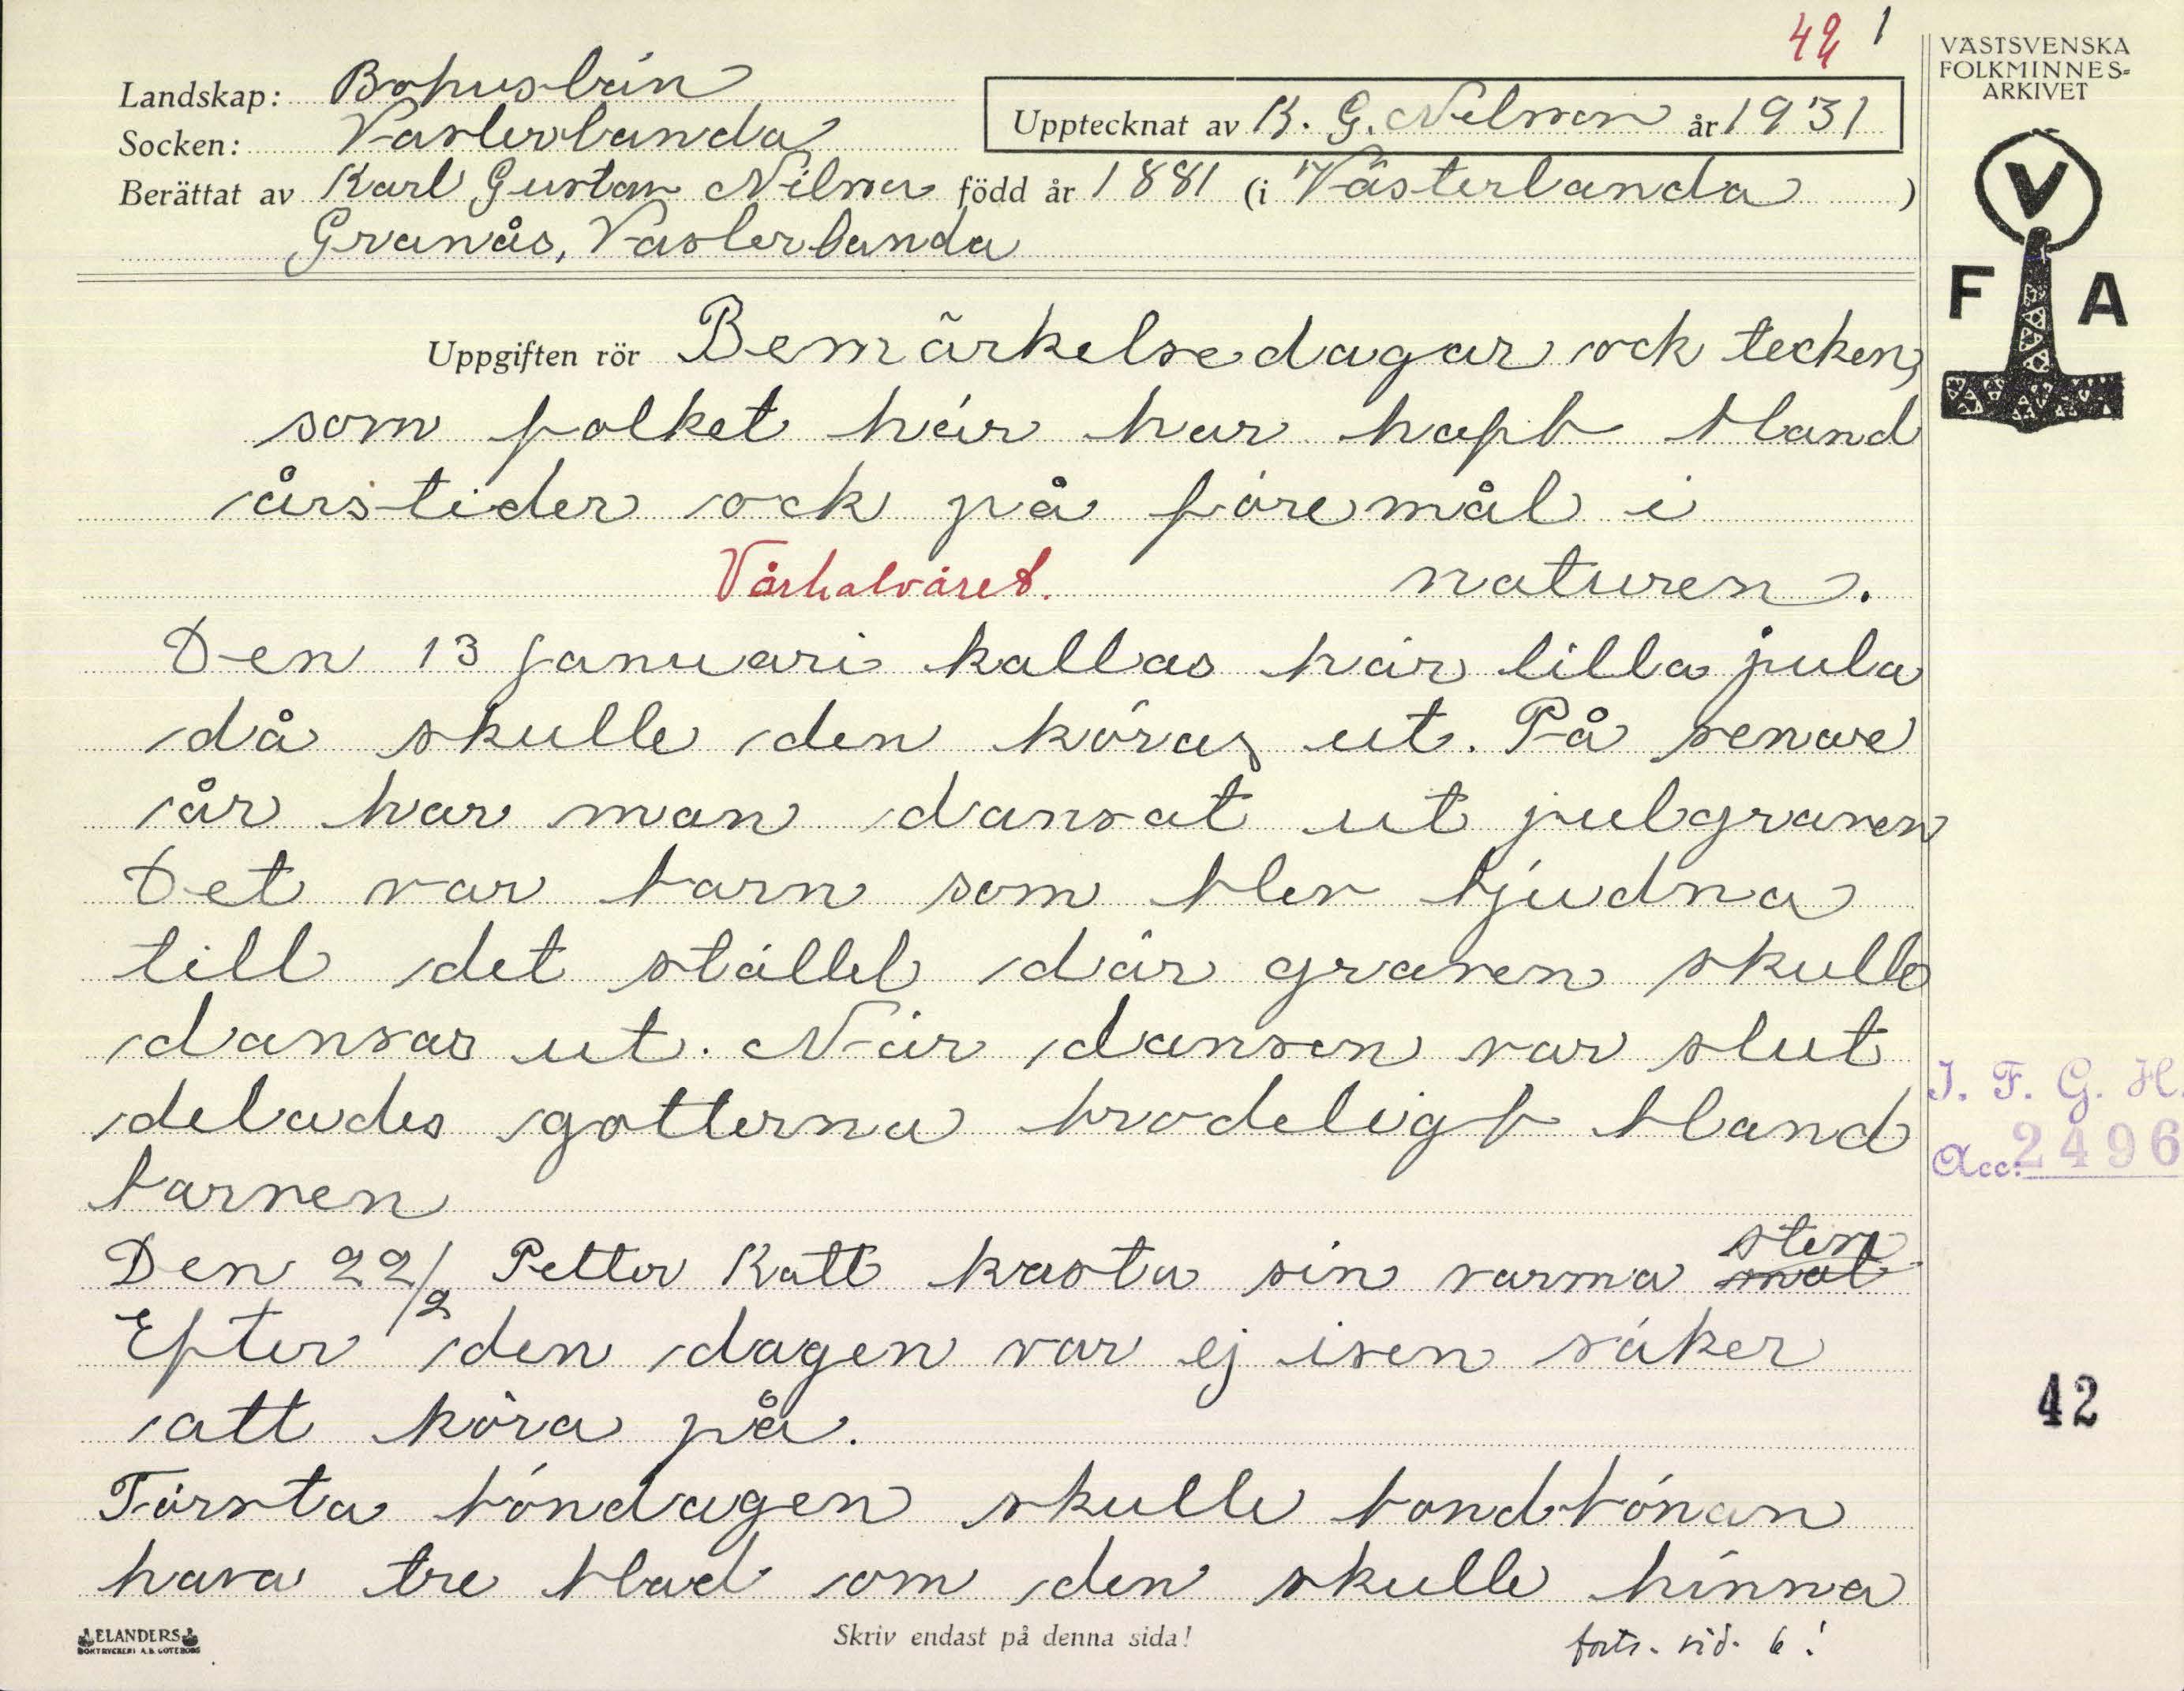 42 1
VÄSTSVENSKA
FOLKMINNES-
ARKIVET
Landskap: Bohuslän
Socken: Västerlanda
Upptecknat av K. G. Nilsson år 1931
Berättat av Karl Gustav Nilsson född år 1881 (i Västerlanda )
Granås, Västerlanda
V
F A
Uppgiften rör Bemärkelsedagar och tecken,
som folket här har haft bland
årstider och på föremål i
Vårhalvåret. naturen.
Den 13 januari kallas här lilla jula
då skulle den köras ut. På senare
år har man dansat ut julgranen
Det var barn som blev bjudna
till det stället där granen skulle
dansas ut. När dansen var slut
delades gotterna broderligt bland
barnen
Den 22/2 Petter Katt kasta sin varma mat sten
Efter den dagen var ej isen säker
att köra på.
Första böndagen skulle bondbönan
hava tre blad om den skulle hinna
I. F. G. H.
Acc: 2496
42
ELANDERS
BOKTRYCKERI A.B. GÖTEBORG
Skriv endast på denna sida!
forts. sid. 6!